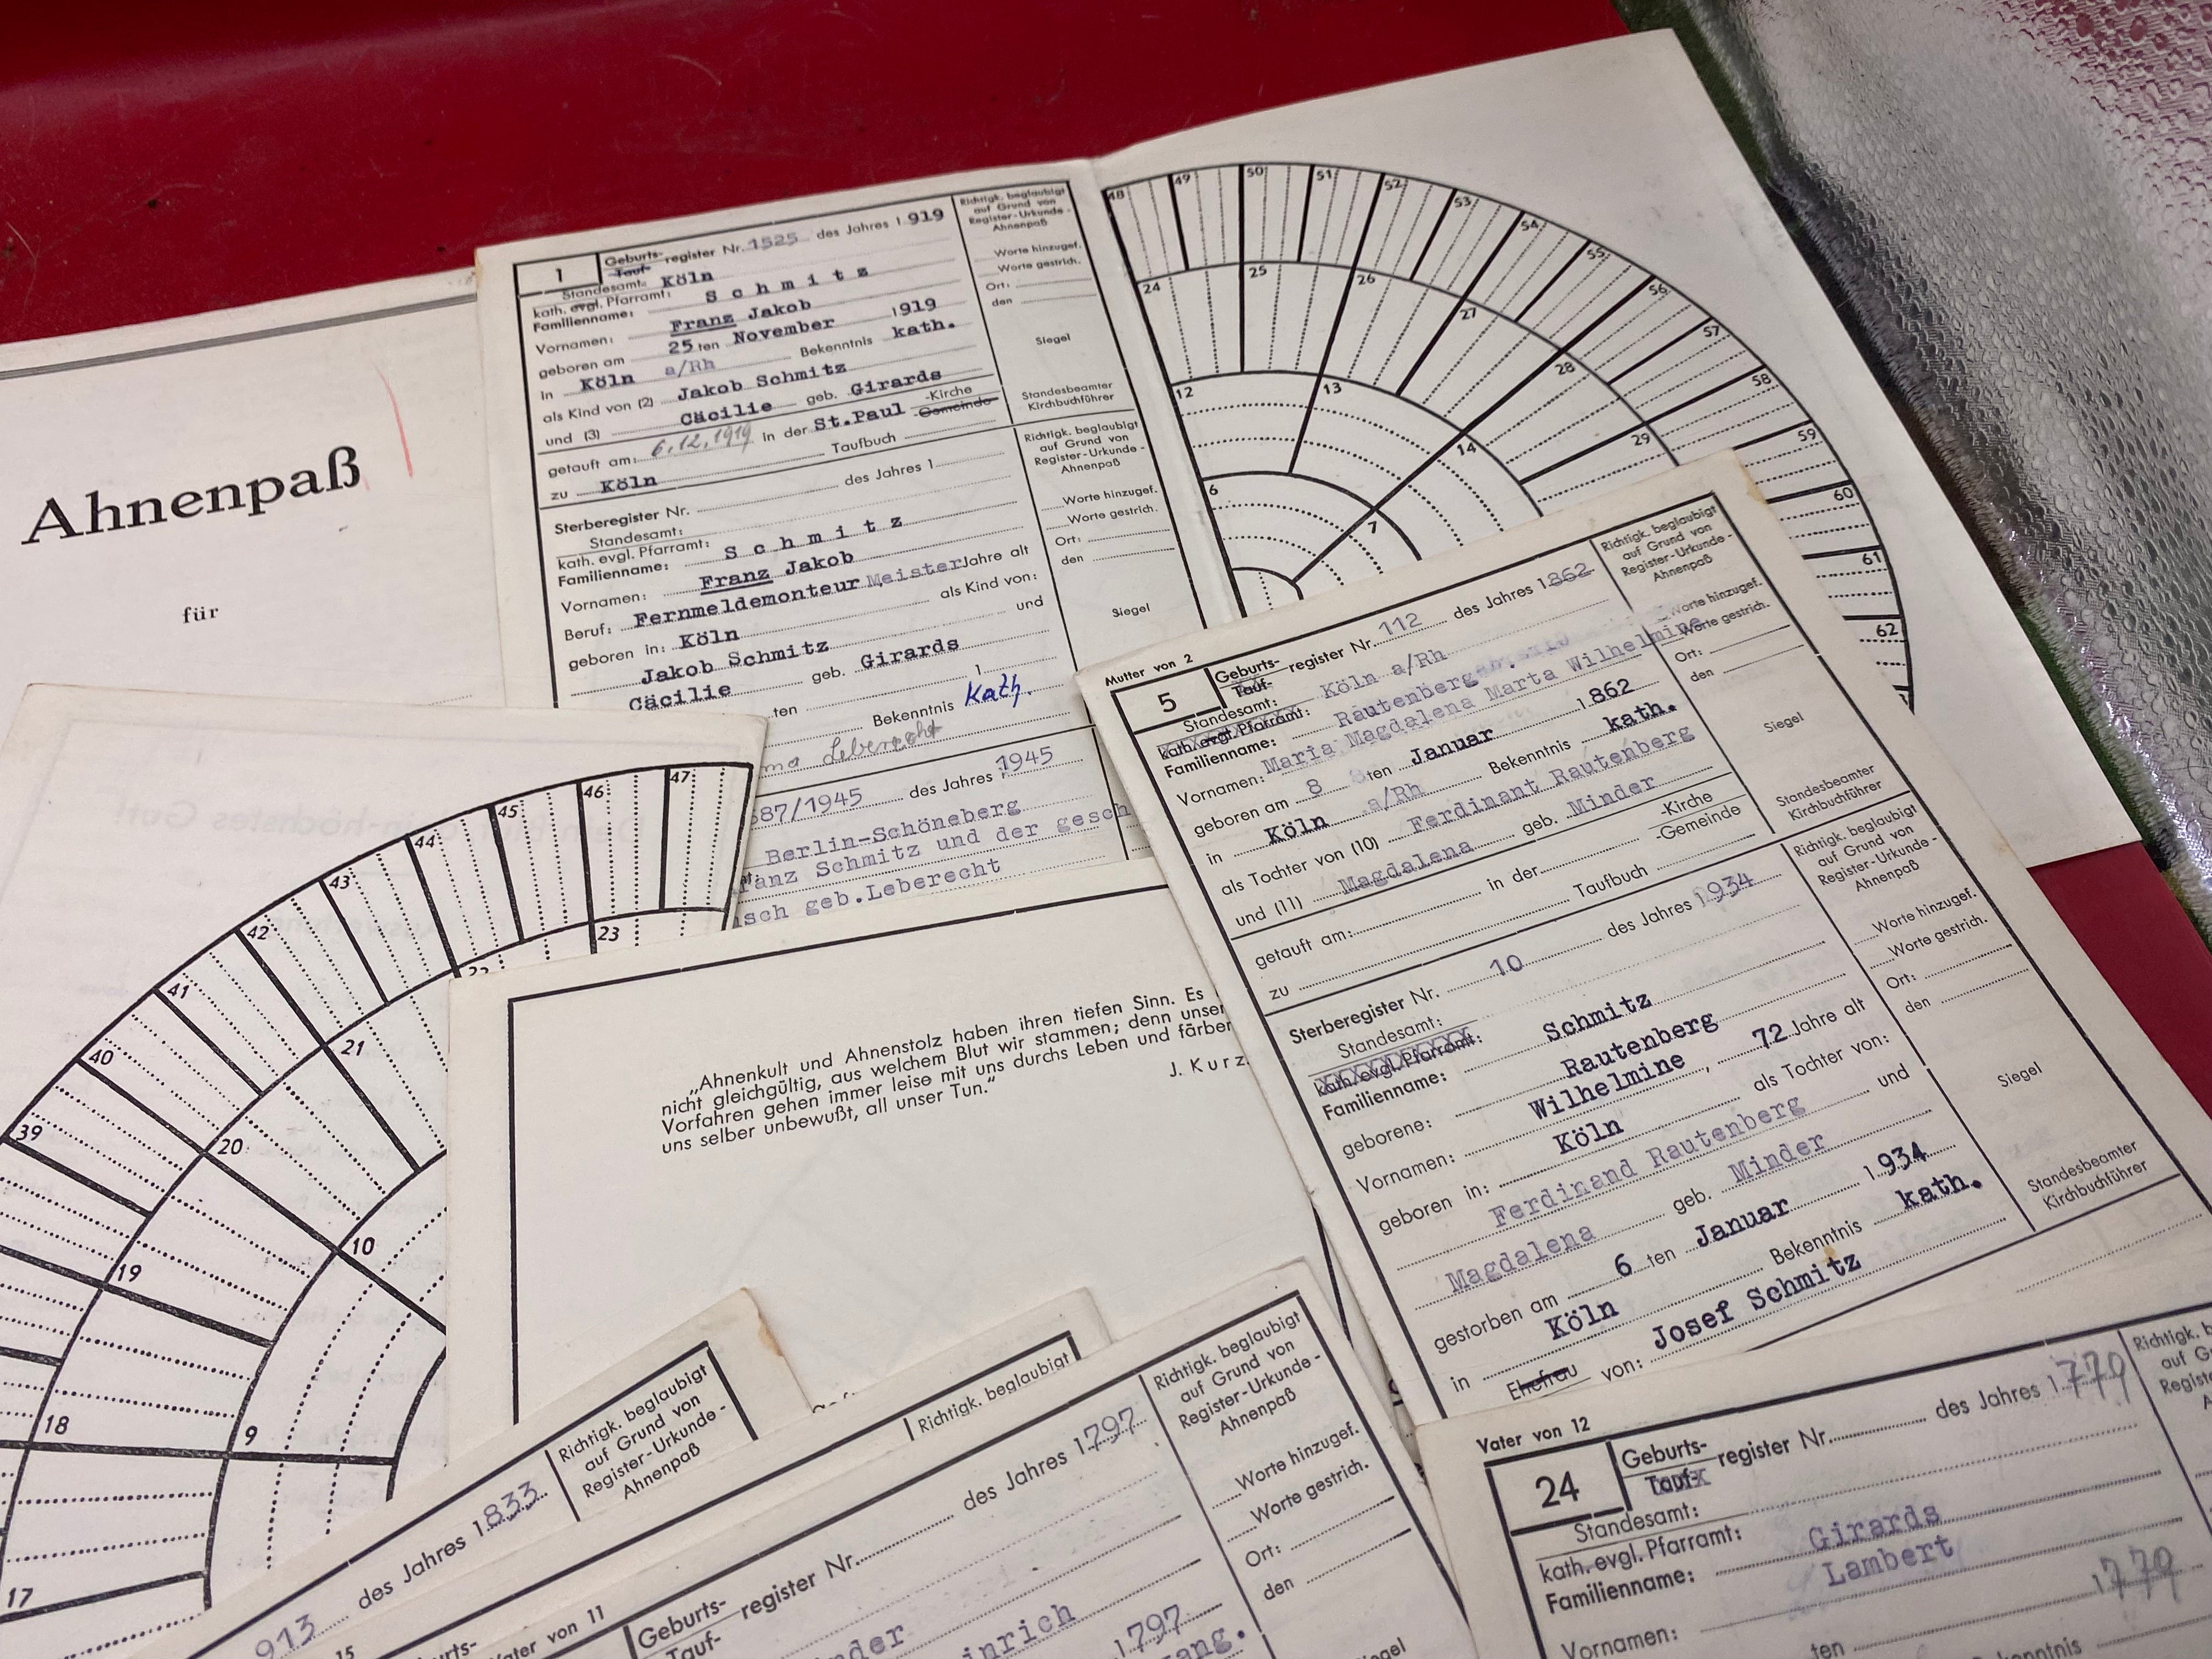 Ahnenpaß
für
1
Geburts-
Tauf- register Nr. 1525 des Jahres 1919
Standesamt: Köln
kath. evgl. Pfarramt:
Familienname: Schmitz
Vornamen: Franz Jakob
geboren am 25 ten November 1919
in Köln a/Rh Bekenntnis kath.
als Kind von (2) Jakob Schmitz
und (3) Cäcilie geb. Girards
getauft am: 6.12.1919 in der St.Paul -Kirche
-Gemeinde
zu Köln Taufbuch
Richtigk. beglaubigt
auf Grund von
Register-Urkunde-
Ahnenpaß
Worte hinzugef.
Worte gestrich.
Ort:
den
Siegel
Standesbeamter
Kirchbuchführer
Sterberegister Nr. des Jahres 1
Standesamt:
kath. evgl. Pfarramt:
Familienname: Schmitz
Vornamen: Franz Jakob
Beruf: Fernmeldemonteur Meister Jahre alt
geboren in: Köln als Kind von:
Jakob Schmitz und
Cäcilie geb. Girards
ten 1
Bekenntnis Kath.
Leberecht
Richtigk. beglaubigt
auf Grund von
Register-Urkunde-
Ahnenpaß
Worte hinzugef.
Worte gestrich.
Ort:
den
Siegel
87/1945 des Jahres 1945
Berlin-Schöneberg
anz Schmitz und der gesch
sch geb.Leberecht
48 49 50 51 52 53 54 55 56 57 58 59 60 61 62
24 25 26 27 28 29
12 13 14
6 7
Mutter von 2
5
Geburts-
Tauf- register Nr. 112 des Jahres 1862
Standesamt: Köln a/Rh
kath. evgl. Pfarramt:
Familienname: Rautenberg
Vornamen: Maria Magdalena Marta Wilhelmine
geboren am 8 ten Januar 1862
in Köln a/Rh Bekenntnis kath.
als Tochter von (10) Ferdinant Rautenberg
und (11) Magdalena geb. Minder
getauft am: in der -Kirche
-Gemeinde
zu Taufbuch
Richtigk. beglaubigt
auf Grund von
Register-Urkunde-
Ahnenpaß
Worte hinzugef.
Worte gestrich.
Ort:
den
Siegel
Standesbeamter
Kirchbuchführer
Sterberegister Nr. 10 des Jahres 1934
Standesamt:
kath. evgl. Pfarramt:
Familienname: Schmitz
geborene: Rautenberg
Vornamen: Wilhelmine, 72 Jahre alt
geboren in: Köln als Tochter von:
Ferdinand Rautenberg und
Magdalena geb. Minder
gestorben am 6 ten Januar 1934
in Köln Bekenntnis kath.
Ehefrau von: Josef Schmitz
Richtigk. beglaubigt
auf Grund von
Register-Urkunde-
Ahnenpaß
Worte hinzugef.
Worte gestrich.
Ort:
den
Siegel
Standesbeamter
Kirchbuchführer
39 40 41 42 43 44 45 46 47
17 18 19 20 21 22 23
9 10
„Ahnenkult und Ahnenstolz haben ihren tiefen Sinn. Es
nicht gleichgültig, aus welchem Blut wir stammen; denn unser
Vorfahren gehen immer leise mit uns durchs Leben und färben
uns selber unbewußt, all unser Tun.“
J. Kurz.
913 des Jahres 1833
Richtigk. beglaubigt
auf Grund von
Register-Urkunde-
Ahnenpaß
15
Richtigk. beglaubigt
Vater von 11
Geburts-
Tauf- register Nr. des Jahres 1797
nder
inrich
1797
ang.
Richtigk. beglaubigt
auf Grund von
Register-Urkunde-
Ahnenpaß
Worte hinzugef.
Worte gestrich.
Ort:
den
Siegel
Vater von 12
24
Geburts-
Tauf- register Nr. des Jahres 1779
Standesamt:
kath. evgl. Pfarramt:
Familienname: Girards
Vornamen: Lambert
ten 1779
Bekenntnis
Richtigk. b
auf G
Registe